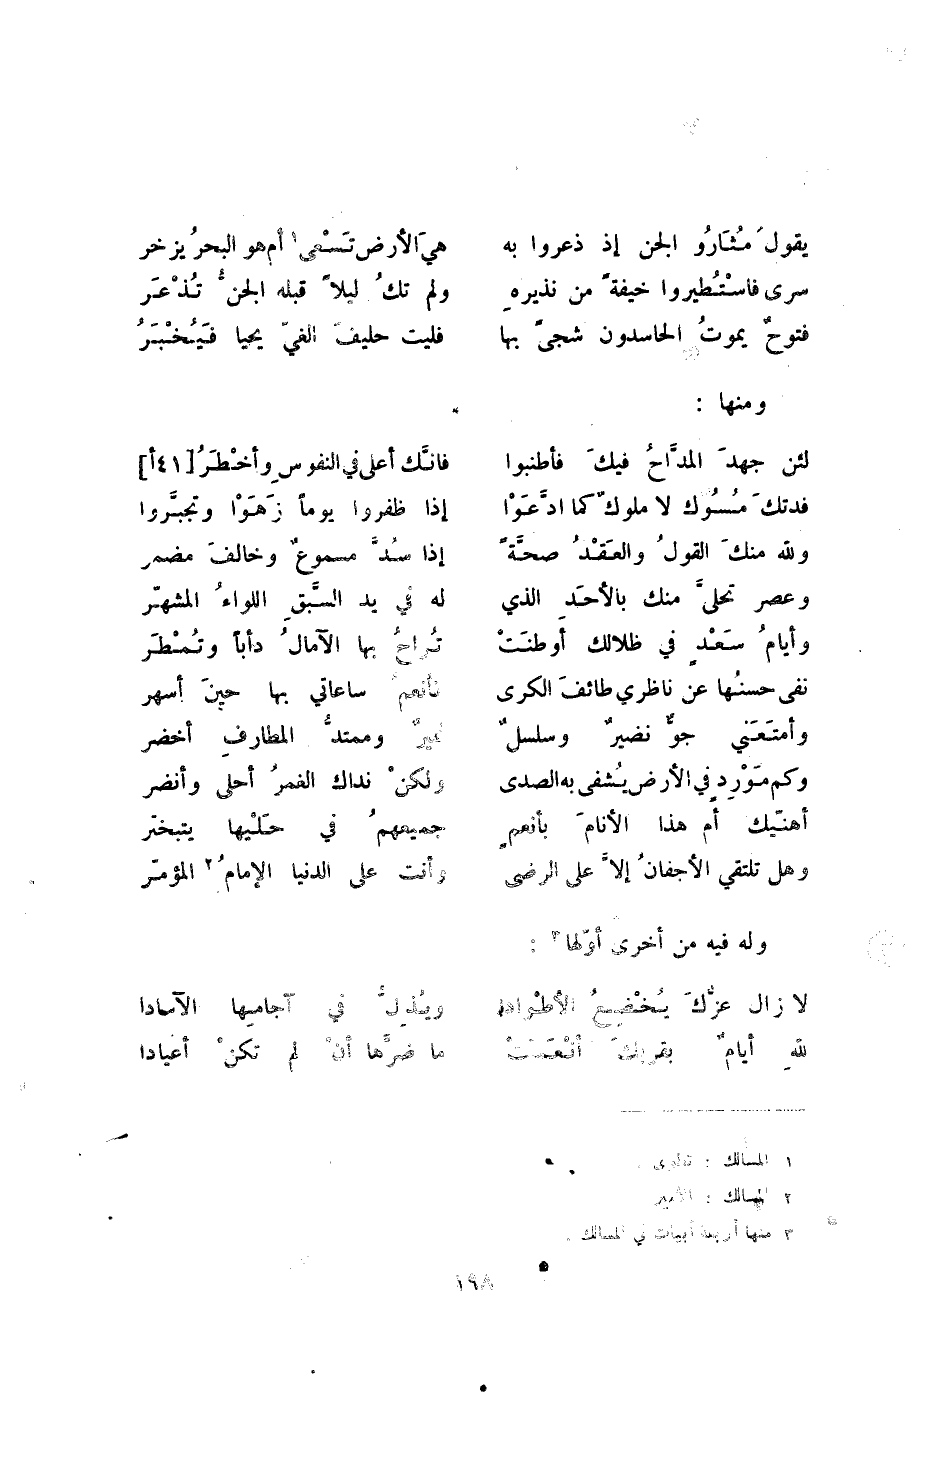 يقولُ مُثَارُو الجن إذ ذعروا به هيَ الأرض تَسْعى١ أم هو البحرُ يزخر
سرى فاسْتُطيروا خيفةً من نذيرهِ ولم تكُ ليلاً قبله الجنُّ تُذْعَر
فتوحٌ يموتُ الحاسدون شجىً بها فليت حليفَ الغيّ يحيا فَيُخْبَرُ
ومنها :
لئن جهدَ المدَّاحُ فيكَ فأطنبوا فانَّك أعلى في النفوسِ وأخْطَرُ [٤١أ]
فدتكَ مُسُوك لا ملوكٌ كما ادَّعَوْا إذا ظفروا يوماً زَهَوْا وتجبَّروا
ولله منكَ القولُ والعَقْدُ صحَّةً إذا سُدَّ مسموعٌ وخالفَ مضمر
وعصر تحلىَّ منك بالأحَدِ الذي له في يد السَّبقِ اللواءُ المشهّر
وأيامُ سَعْدٍ في ظلالك أوطنَتْ تُراحُ بها الآمالُ دأباً وتُمْطَر
نفى حسنُها عن ناظري طائفَ الكرى فأنعمُ ساعاتي بها حينَ أسهر
وأمتَعَني جوٌّ نضيرٌ وسلسلٌ نميرٌ وممتدُّ المطارفِ أخضر
وكم مَوْرِدٍ في الأرض يُشفى به الصدى ولكنْ نداك الغمرُ أحلى وأنضر
أهنّيك أم هذا الأنامَ بأنعمٍ جميعهمُ في حَلْيها يتبختر
وهل تلتقي الأجفانُ إلاَّ على الرضى وأنت على الدنيا الإمامُ٢ المؤمّر
وله فيه من أخرى أوّلها٣ :
لا زال عزُّكَ يُخْضِعُ الأطْوادا ويُذِلُّ في آجامِها الآسادا
للهِ أيامٌ بقربكَ أنْعَمَتْ ما ضرَّها أنْ لم تكنْ أعيادا
١ المسالك : تدوى .
٢ المسالك : الأمير
٣ منها أربعة أبيات في المسالك .
١٩٨